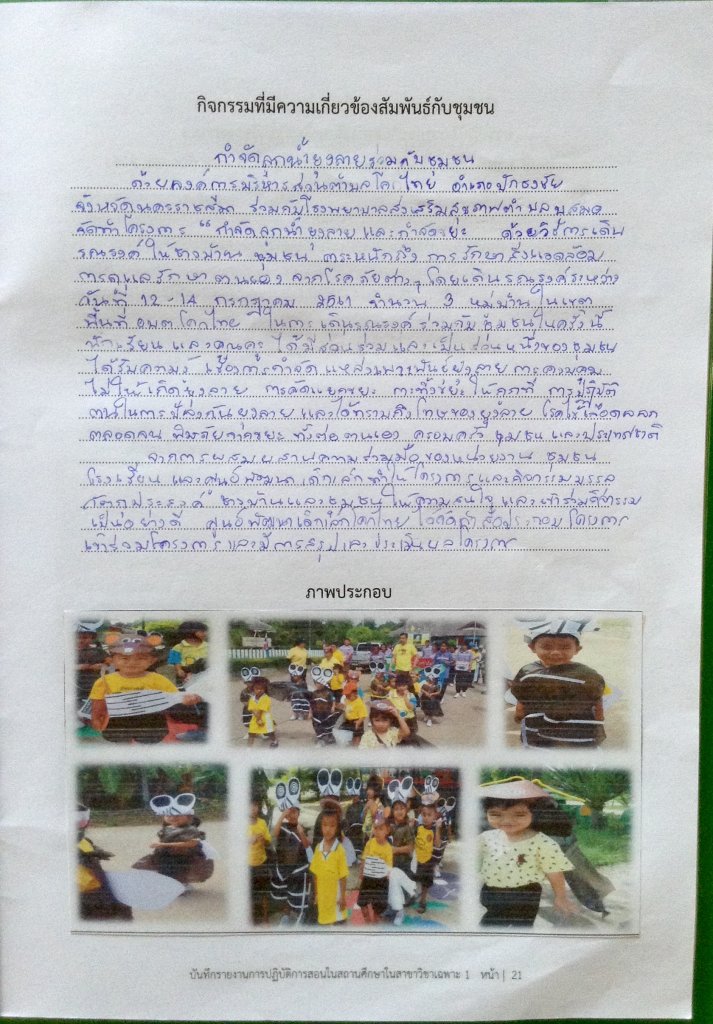 กิจกรรมที่มีความเกี่ยวข้องสัมพันธ์กับชุมชน
กำจัดลูกน้ำยุงลายร่วมกับชุมชน
ด้วยองค์การบริหารส่วนตำบลโคกไทย อำเภอปักธงชัย
จังหวัดนครราชสีมา ร่วมกับโรงพยาบาลส่งเสริมสุขภาพตำบล
จัดทำโครงการ "กำจัดลูกน้ำยุงลายและกำจัดขยะ ด้วยวิธีการเดิน
รณรงค์ให้ชาวบ้าน ชุมชน ตระหนักถึง การรักษาสิ่งแวดล้อม
การดูแลรักษาตนเอง จากโรคภัยต่างๆ โดยเดินรณรงค์ระหว่าง
วันที่ 12-14 กรกฎาคม 2561 จำนวน 3 หมู่บ้าน ในเขต
พื้นที่ อบต โคกไทย ในการเดินรณรงค์ร่วมกับชุมชนในครั้งนี้
นักเรียน และคุณครู ได้มีส่วนร่วมและเป็นส่วนหนึ่งของชุมชน
ได้รับความรู้ เรื่องการกำจัดแหล่งเพาะพันธุ์ยุงลาย การควบคุม
ไม่ให้เกิดยุงลาย การคัดแยกขยะ การทิ้งขยะให้ถูกที่ การปฏิบัติ
ตนในการป้องกันยุงลาย และได้ทราบถึงโทษของยุงลาย โรคไข้เลือดออก
ตลอดจน พิษภัยจากขยะ ทั้งต่อตนเอง ครอบครัว ชุมชน และประเทศชาติ
จากการผสมผสานความร่วมมือของหน่วยงาน ชุมชน
โรงเรียน และศูนย์พัฒนาเด็กเล็กทำให้โครงการและกิจกรรมบรรลุ
วัตถุประสงค์ ชาวบ้านและชุมชนให้ความสนใจ และเข้าร่วมกิจกรรม
เป็นอย่างดี ศูนย์พัฒนาเด็กเล็กโคกไทย ได้จัดทำสื่อประกอบโครงการ
เข้าร่วมโครงการ และมีการสรุปและประเมินผลโครงการ
ภาพประกอบ
บันทึกรายงานการปฏิบัติการสอนในสถานศึกษาในสาขาวิชาเฉพาะ 1 หน้า | 21